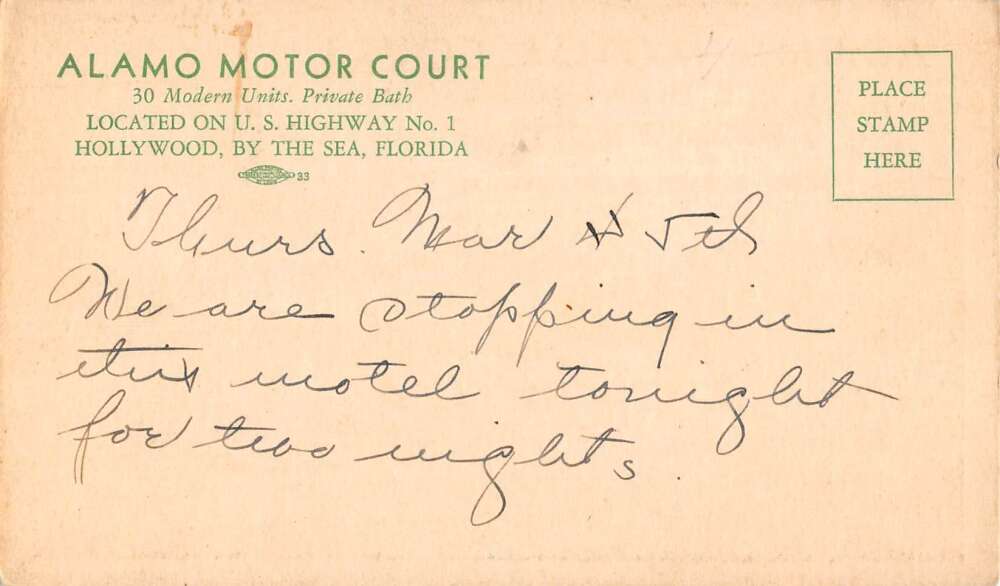 ALAMO MOTOR COURT
30 Modern Units. Private Bath
LOCATED ON U. S. HIGHWAY No. 1
HOLLYWOOD, BY THE SEA, FLORIDA
33
PLACE
STAMP
HERE
Thurs. Mar 5th
We are stopping in
this motel tonight
for two nights.